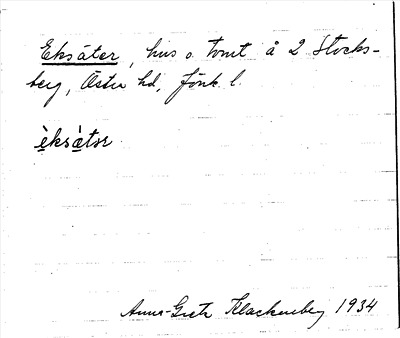 Eksäter, hus o. tomt å 2 Stocks-
berg, Östra hd, Jönk. l.
èksàtər
Anna-Greta Klackenberg 1934